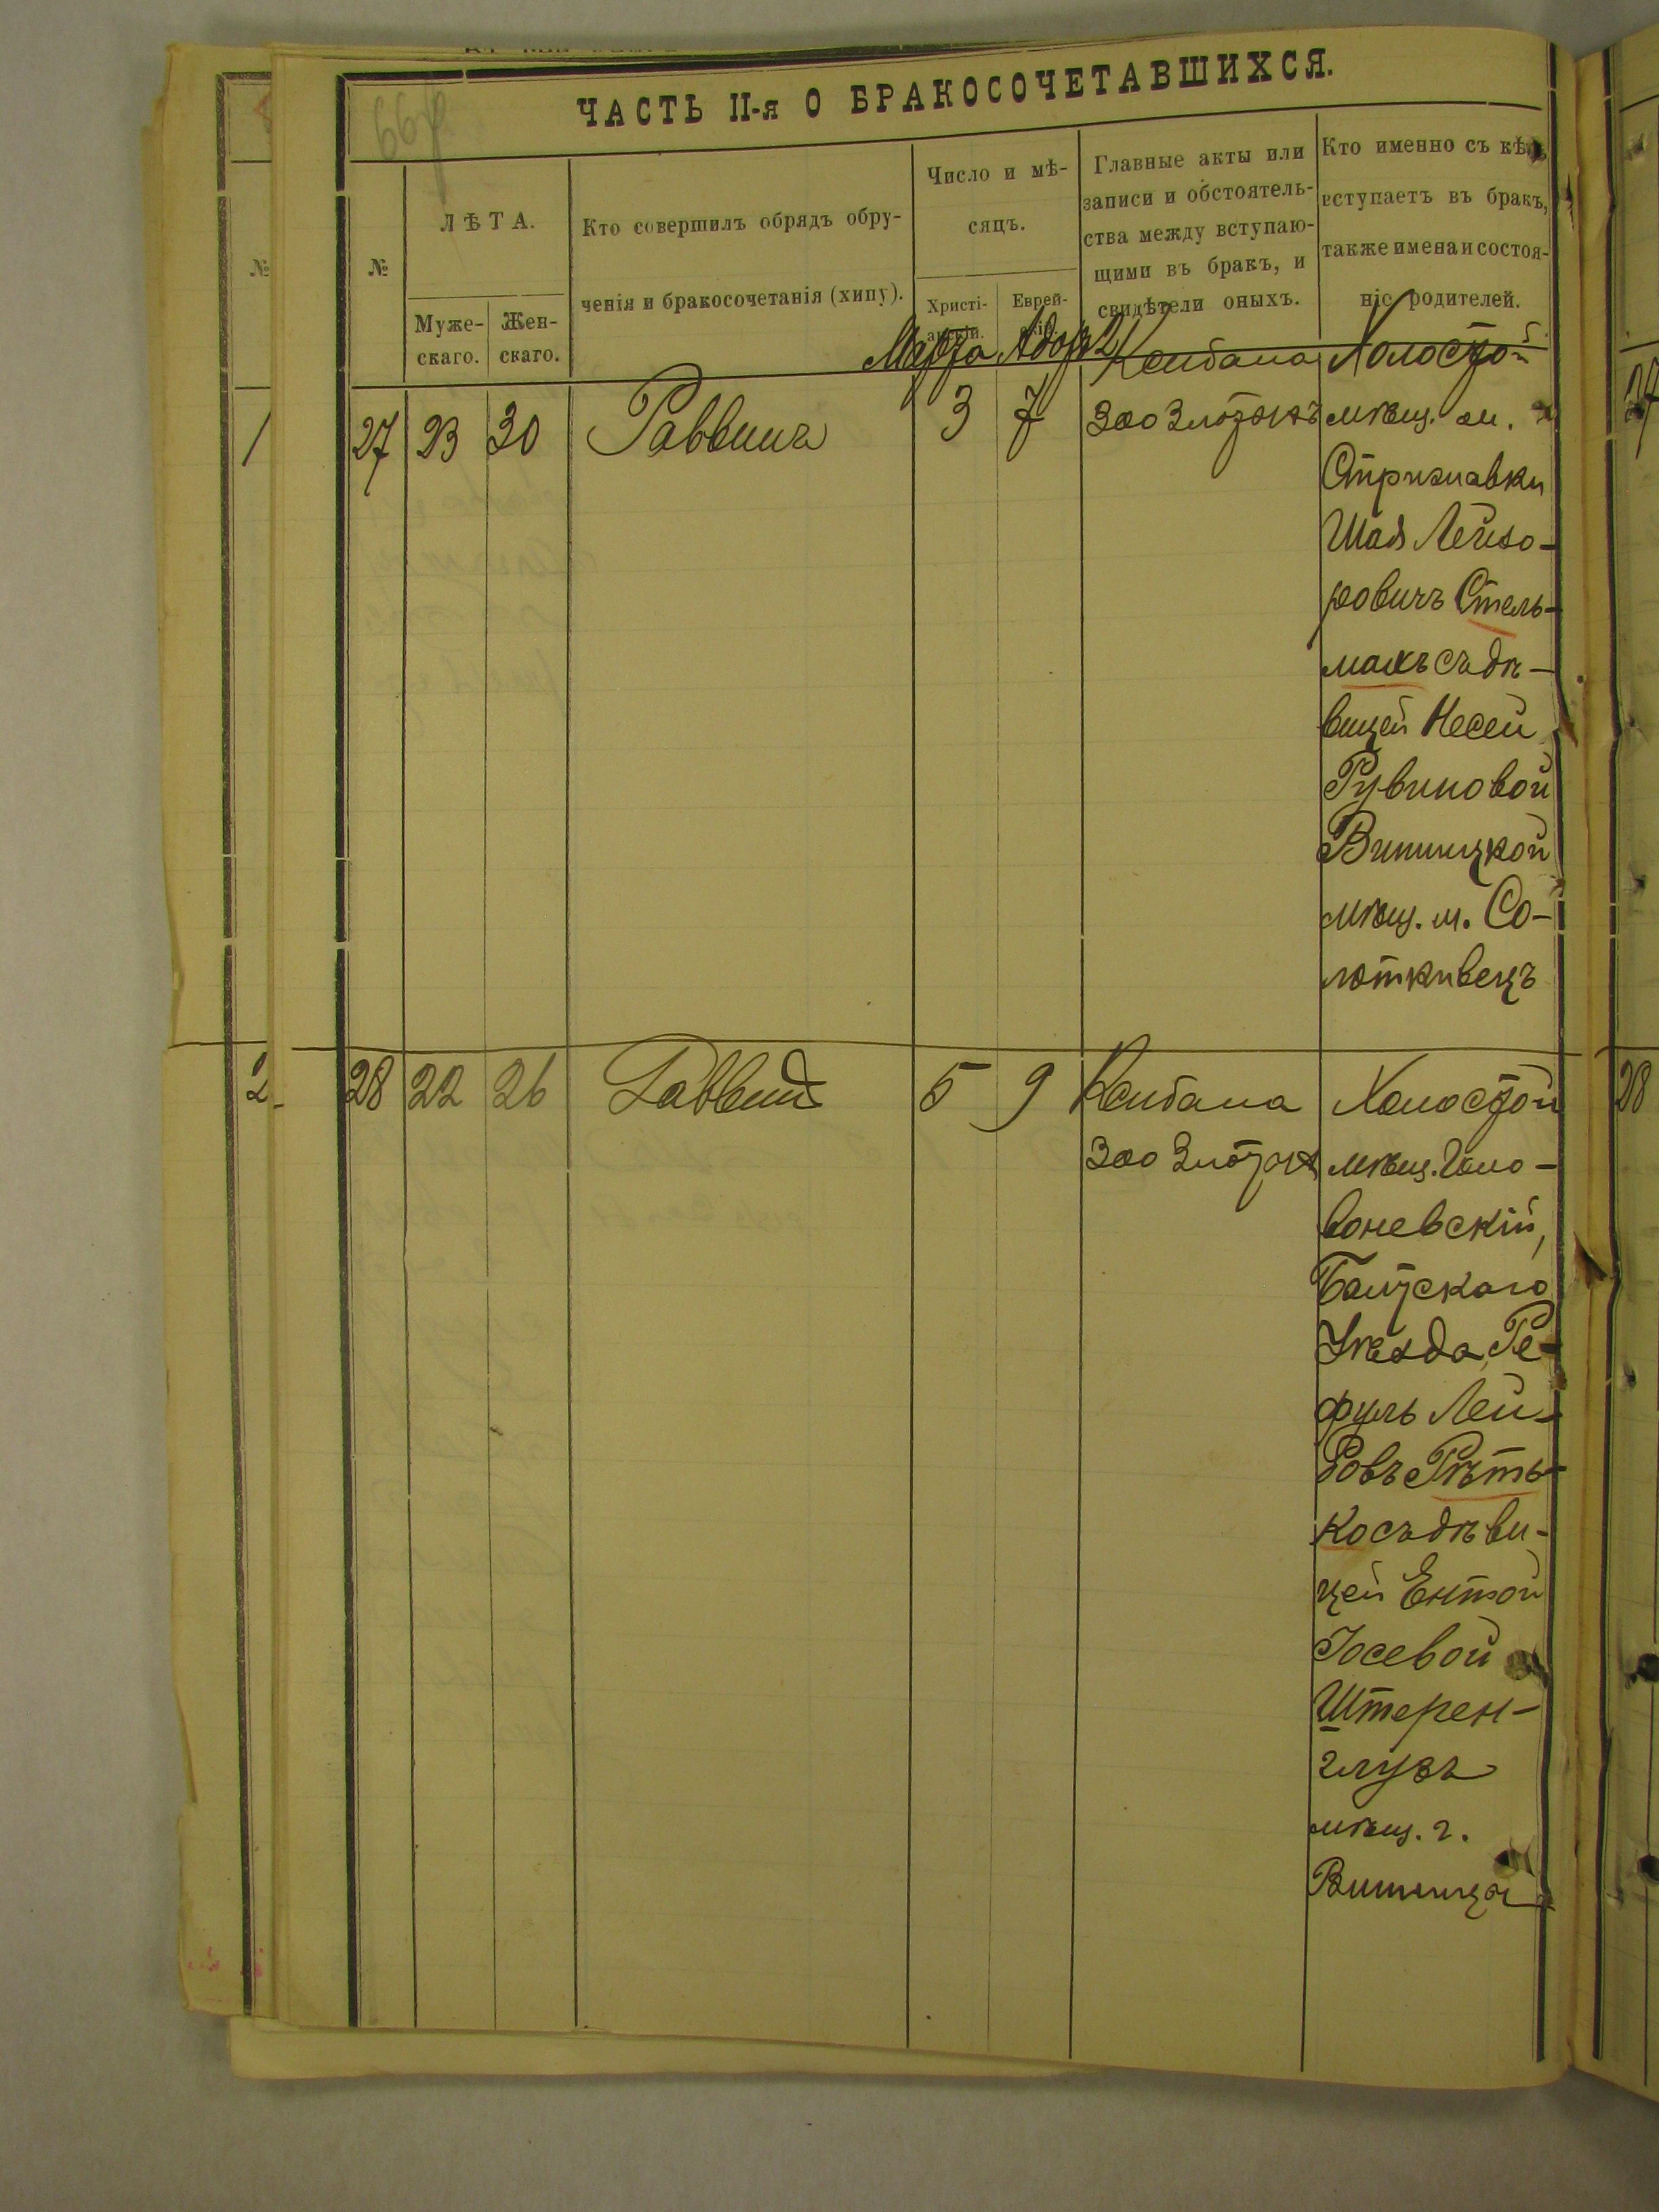 ЧАСТЬ II-я О БРАКОСОЧЕТАВШИХСЯ.
№
ЛѢТА.
Муже-
скаго.
Жен-
скаго.
Кто совершилъ обрядъ обру-
ченія и бракосочетанія (хипу).
Число и мѣ-
сяцъ.
Христі-
анскій.
Еврей-
скій.
Главные акты или
записи и обстоятель-
ства между вступаю-
щими въ бракъ, и
свидѣтели оныхъ.
Кто именно съ кѣмъ
вступаетъ въ бракъ,
также имена и состоя-
ніе родителей.
Марта Адора 2
27 23 30 Раввинъ 3 7
Ксибана
300 Злотохъ
Холостой
мѣщ. м.
Стрижавки
Шая Лейзо-
ровичъ Стель-
махъ съ дѣ-
вицей Несей
Рувиновой
Винницкой
мѣщ. м. Со-
лоткивецъ
28 22 26 Раввинъ 5 9
Ксибана
300 Злотох
Холостой
мѣщ. Голо-
воневскій,
Балтскаго
Уѣзда, Ре-
фуль Лей-
Ровъ Рѣть-
ко съ дѣви-
цей Ентой
Іосевой
Штерен-
глузъ
мѣщ. г.
Винница
№
1
2
27
28